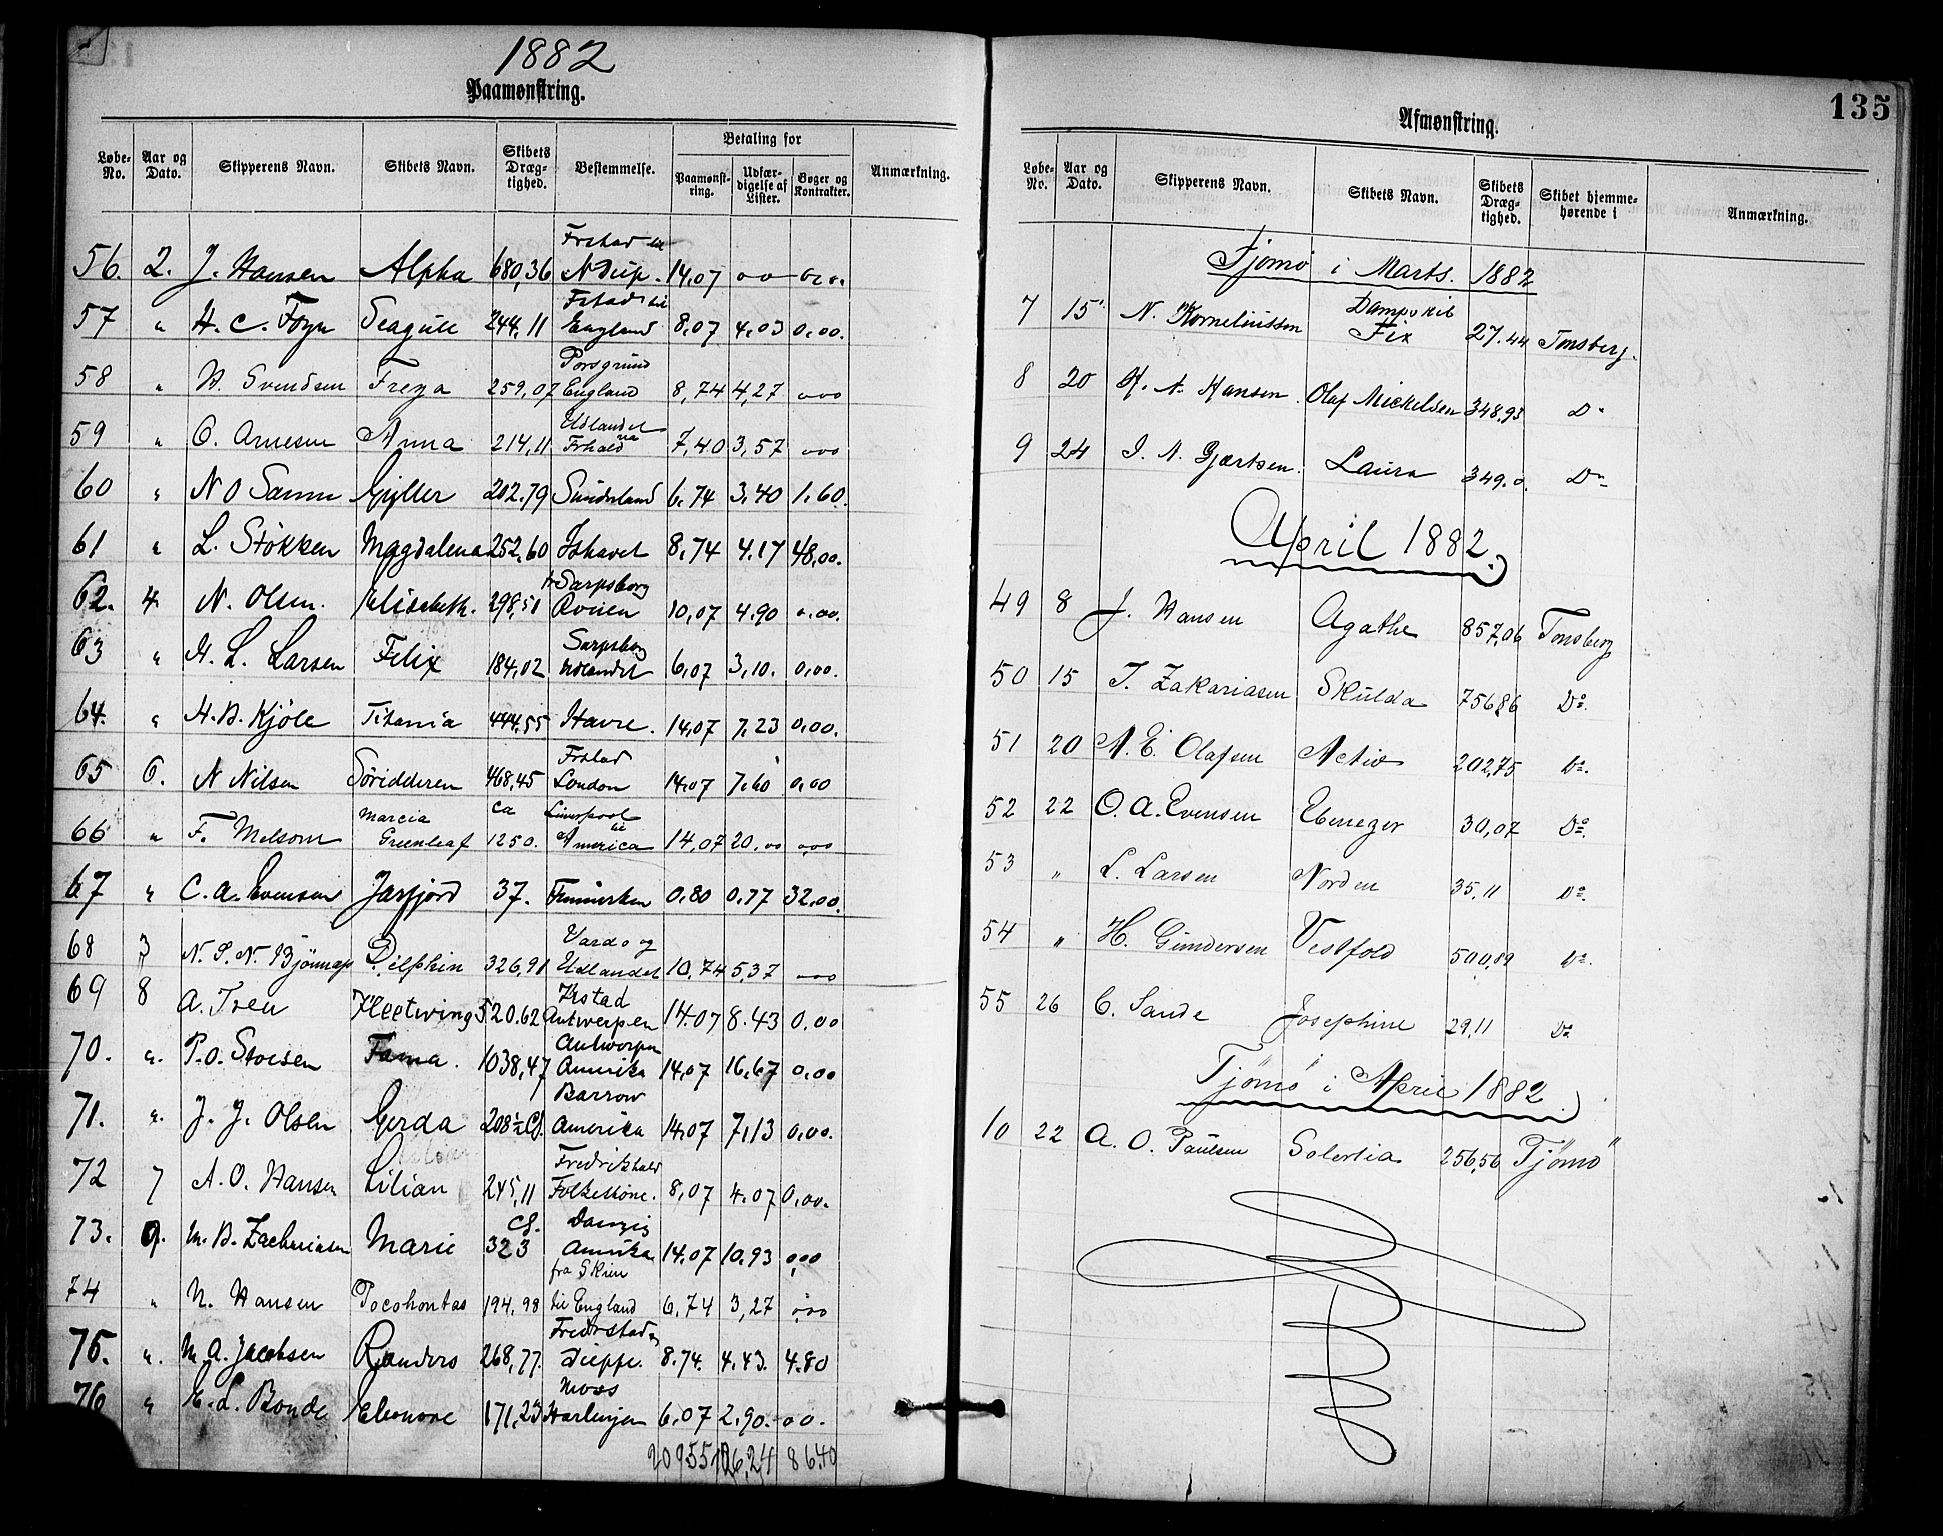 1882
Paamønstring.
Løbe-No. Aar og Dato. Skipperens Navn. Skibets Navn. Skibets Dræg-tighed. Bestemmelse. Betaling for Paamønst-ring. Udfær-digelse af Lister. Bøger og Kontrakter. Anmærkning.
Frstad til
56. 2. J. Hansen Alpha 680,36 14,07
Frstad til
57 " H. C. Foyn Seagull 244,11 England 8,07 4,03 0,00.
Porsgrund
58 " H. Svendsen Freya 259,07 England 8,74 4,27 000
Udlandet
59 " O. Arnesen Anna 214,11 Frhald 7,40 3,57 000
60 " N O Sanne Gyller 202.79 Sunderland 6,74 3,40 1,60.
61 " L. Støkken Magdalena 252,60 Ishavet 8,74 4.17 48,00.
fr Sarpsborg
62. 4. N. Olsen. Elisabeth. 298,51 Rouen 10,07 4.90 0,00.
Sarpsborg
63 " H. L. Larsen Felix 184,02 Udlandet 6,07 3,10. 0,00.
64. " H. B. Kjøle Titania 444,55 Havre. 14,07 7,23 0,00.
Frstad
65 6. N Nilsen Søridderen 468,45 London 14,07 7,60 0,00
Marcia ca Liverpool til
66 " F. Melsom Greenleaf 1250. America 14,07 20,00 0,00
67 " C. A. Evensen Jarfjord 37. Finmarken 0,80 0,77 32,00.
Vardo og
68 3 N. S. N. Bjønnæs Delphin 326,91 Udlandet 10,74 5,37 000
Frstad
69 8 A. Fleetwing 520.62 Antwerpen 14.07 8.43 0,00
Antwerpen
70. ". P. O. Fama. 1038,47 Amerika 14,07 16,67 0,00
Barrow
71. ". J. J. Olsen Gerda 208½ Cl. Amerika 14,07 7,13 0,00.
Fredrikshald
72 7 A. O. Hansen Lilian 245,11 Folkestone. 8,07 4.07 0,00.
Cl. Danzig
73. 9. M. B. Zachariasen Marie 323 Amerika 14.07 10,93 0,00
fra Skien
74 " N. Hansen Pocohontas 194,98 til England 6,74 3,27 0,00
Fredrstad
75. ". M. A. Jacobsen Randers 268,77. Dieppe. 8.74. 4.43. 4.80
Moss
76 " E. L. Bonde Eleonore 171,23 Harlingen 6,07 2,90.
209 55 126,24 86.40
135
Afmønstring.
Løbe-No. Aar og Dato. Skipperens Navn. Skibets Navn. Skibets Dræg-tighed. Skibet hjemme-hørende i Anmærkning.
Tjømø i Marts. 1882
Dampskib
7 15 N. Korneliussen Fix 27.44 Tonsberg.
8 20 H. A. Hansen Olaf Mickelsen 348,93 Do
9 24 I. A. Gjærtsen. Laura 349.0. Do
April 1882.
49 8 J. Hansen Agathe 857,06 Tonsberg
50 15 T. Zakariasen Skulda 756,86 Do.
51 20 A. E. Olafsen Activ 202,75 Do.
52 22 O. A. Evensen Ebenezer 30,07 Do.
53 " L. Larsen Norden 35,11 Do.
54 " H. Gundersen Vestfold 500,89 Do.
55 26 C. Sande Josephine 29,11 Do
Tjømø i April 1882.
10 22 A. O. Paulsen Solertia 256,56 Tjømø